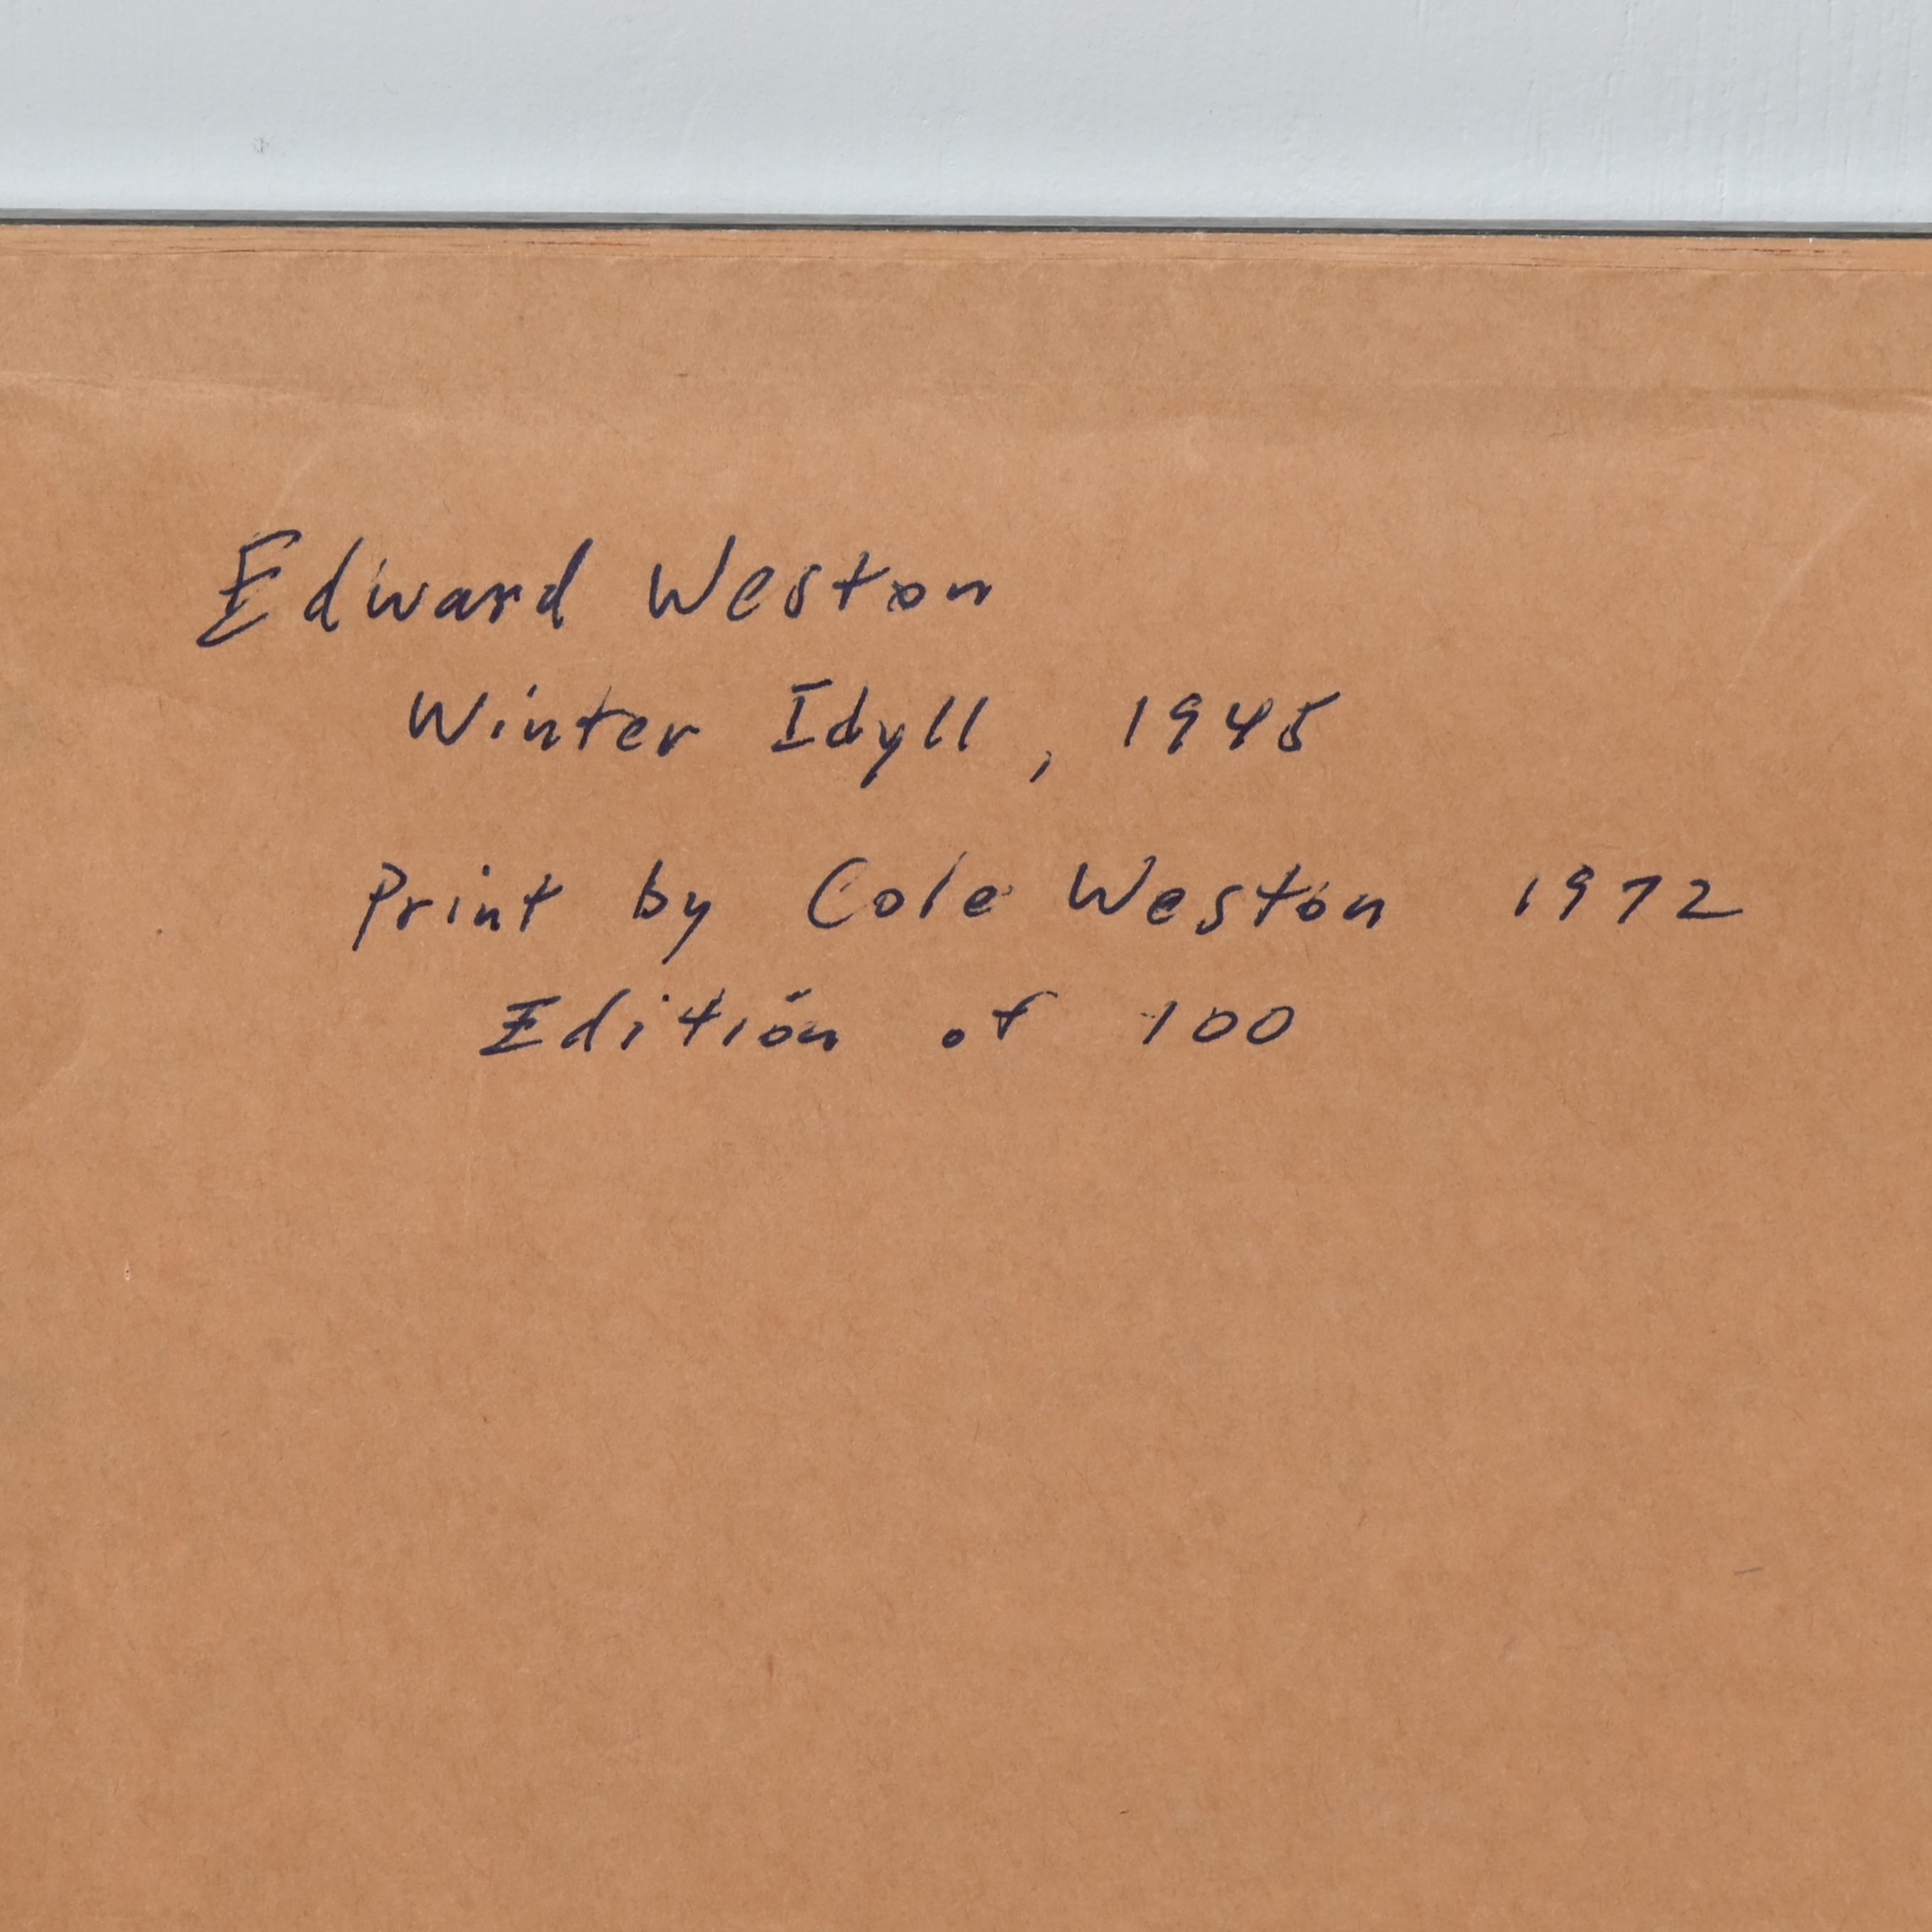 Edward Weston
Winter Idyll, 1945
Print by Cole Weston 1972
Edition of 100